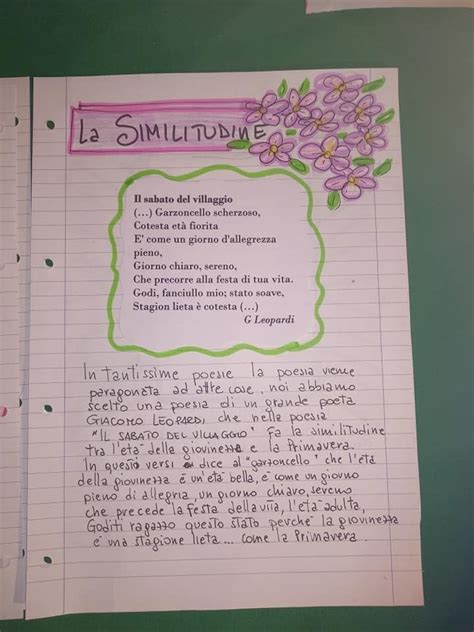 La SIMILITUDINE
Il sabato del villaggio
(...) Garzoncello scherzoso,
Cotesta età fiorita
E' come un giorno d'allegrezza
pieno,
Giorno chiaro, sereno,
Che precorre alla festa di tua vita.
Godi, fanciullo mio; stato soave,
Stagion lieta è cotesta (...)
G Leopardi
In tantissime poesie la poesia viene
paragonata ad altre cose, noi abbiamo
scelto una poesia di un grande poeta
GIACOMO LEOPARDI, che nella poesia
"IL SABATO DEL VILLAGGIO" fa la similitudine
tra l'età della giovinezza e la Primavera.
In questi versi dice al "garzoncello" che l'età
della giovinezza è un'età bella, è come un giorno
pieno di allegria, un giorno chiaro, sereno
che precede la festa della vita, l'età adulta,
Goditi ragazzo questo stato perchè la giovinezza
è una stagione lieta... come la Primavera.